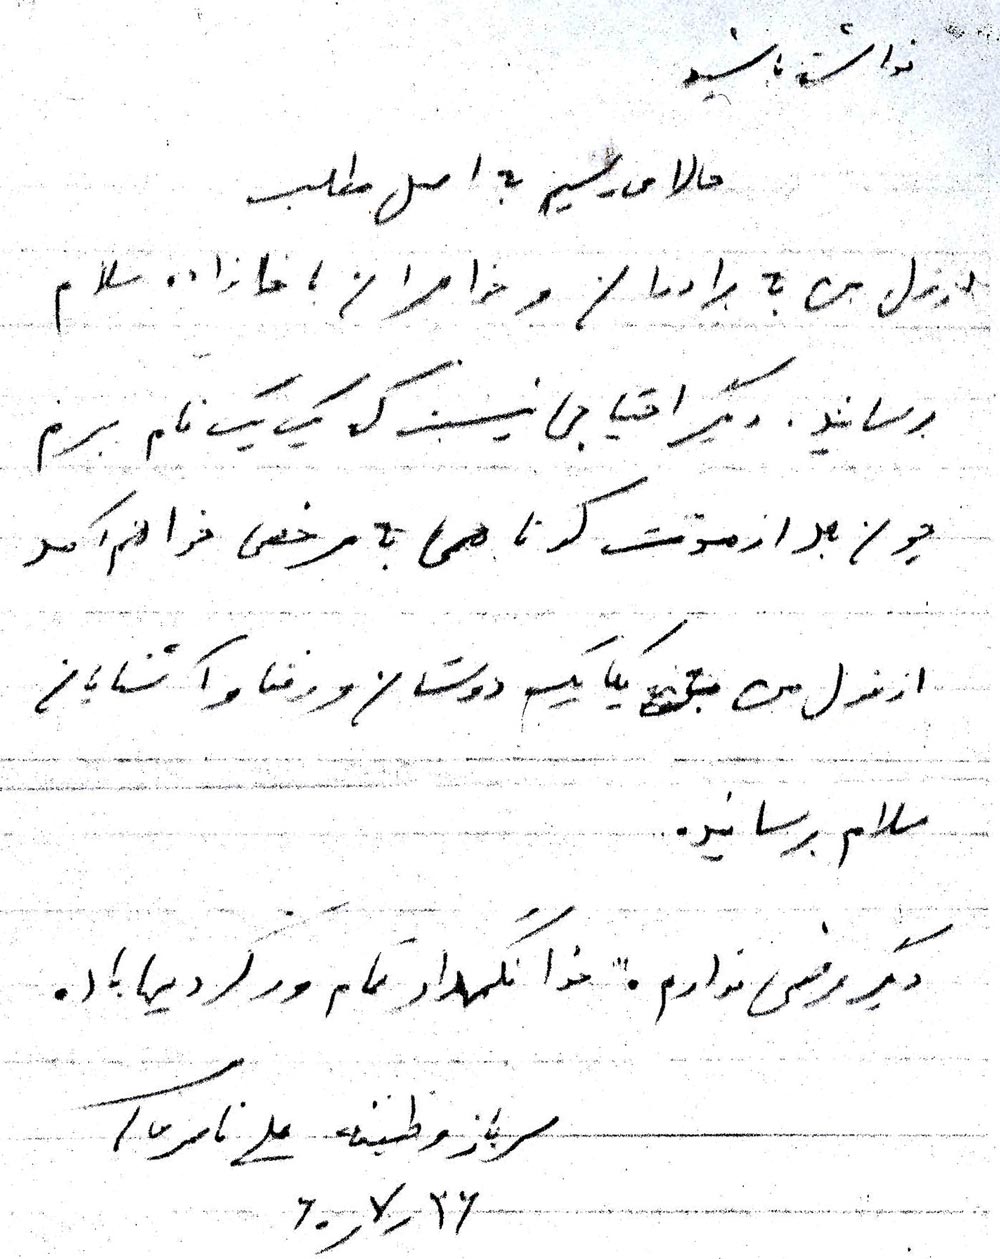 نداشته باشید
حالا می رسیم به اصل مطلب
از قول من به برادران و خواهران با خانواده سلام
برسانید. دیگر احتیاجی نیست که یک یک نام ببرم
چون بعد از مدت کوتاهی به مرخصی خواهم آمد
از قول من یکایک دوستان و رفقا و آشنایان
سلام برسانید.
دیگر عرضی ندارم. خدا نگهدار تمام
سرباز وظیفه علی
۲۶ر۷ر۶۰